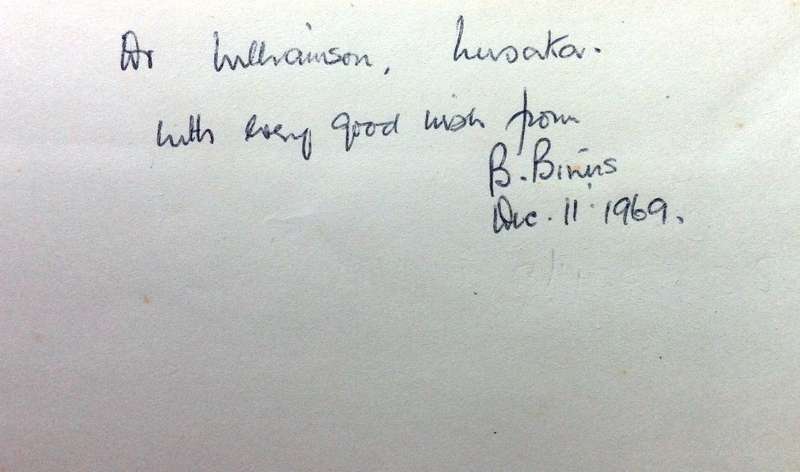 Dr Williamson, Lusaka.
with every good wish from
B. Binns
Dec. 11. 1969.